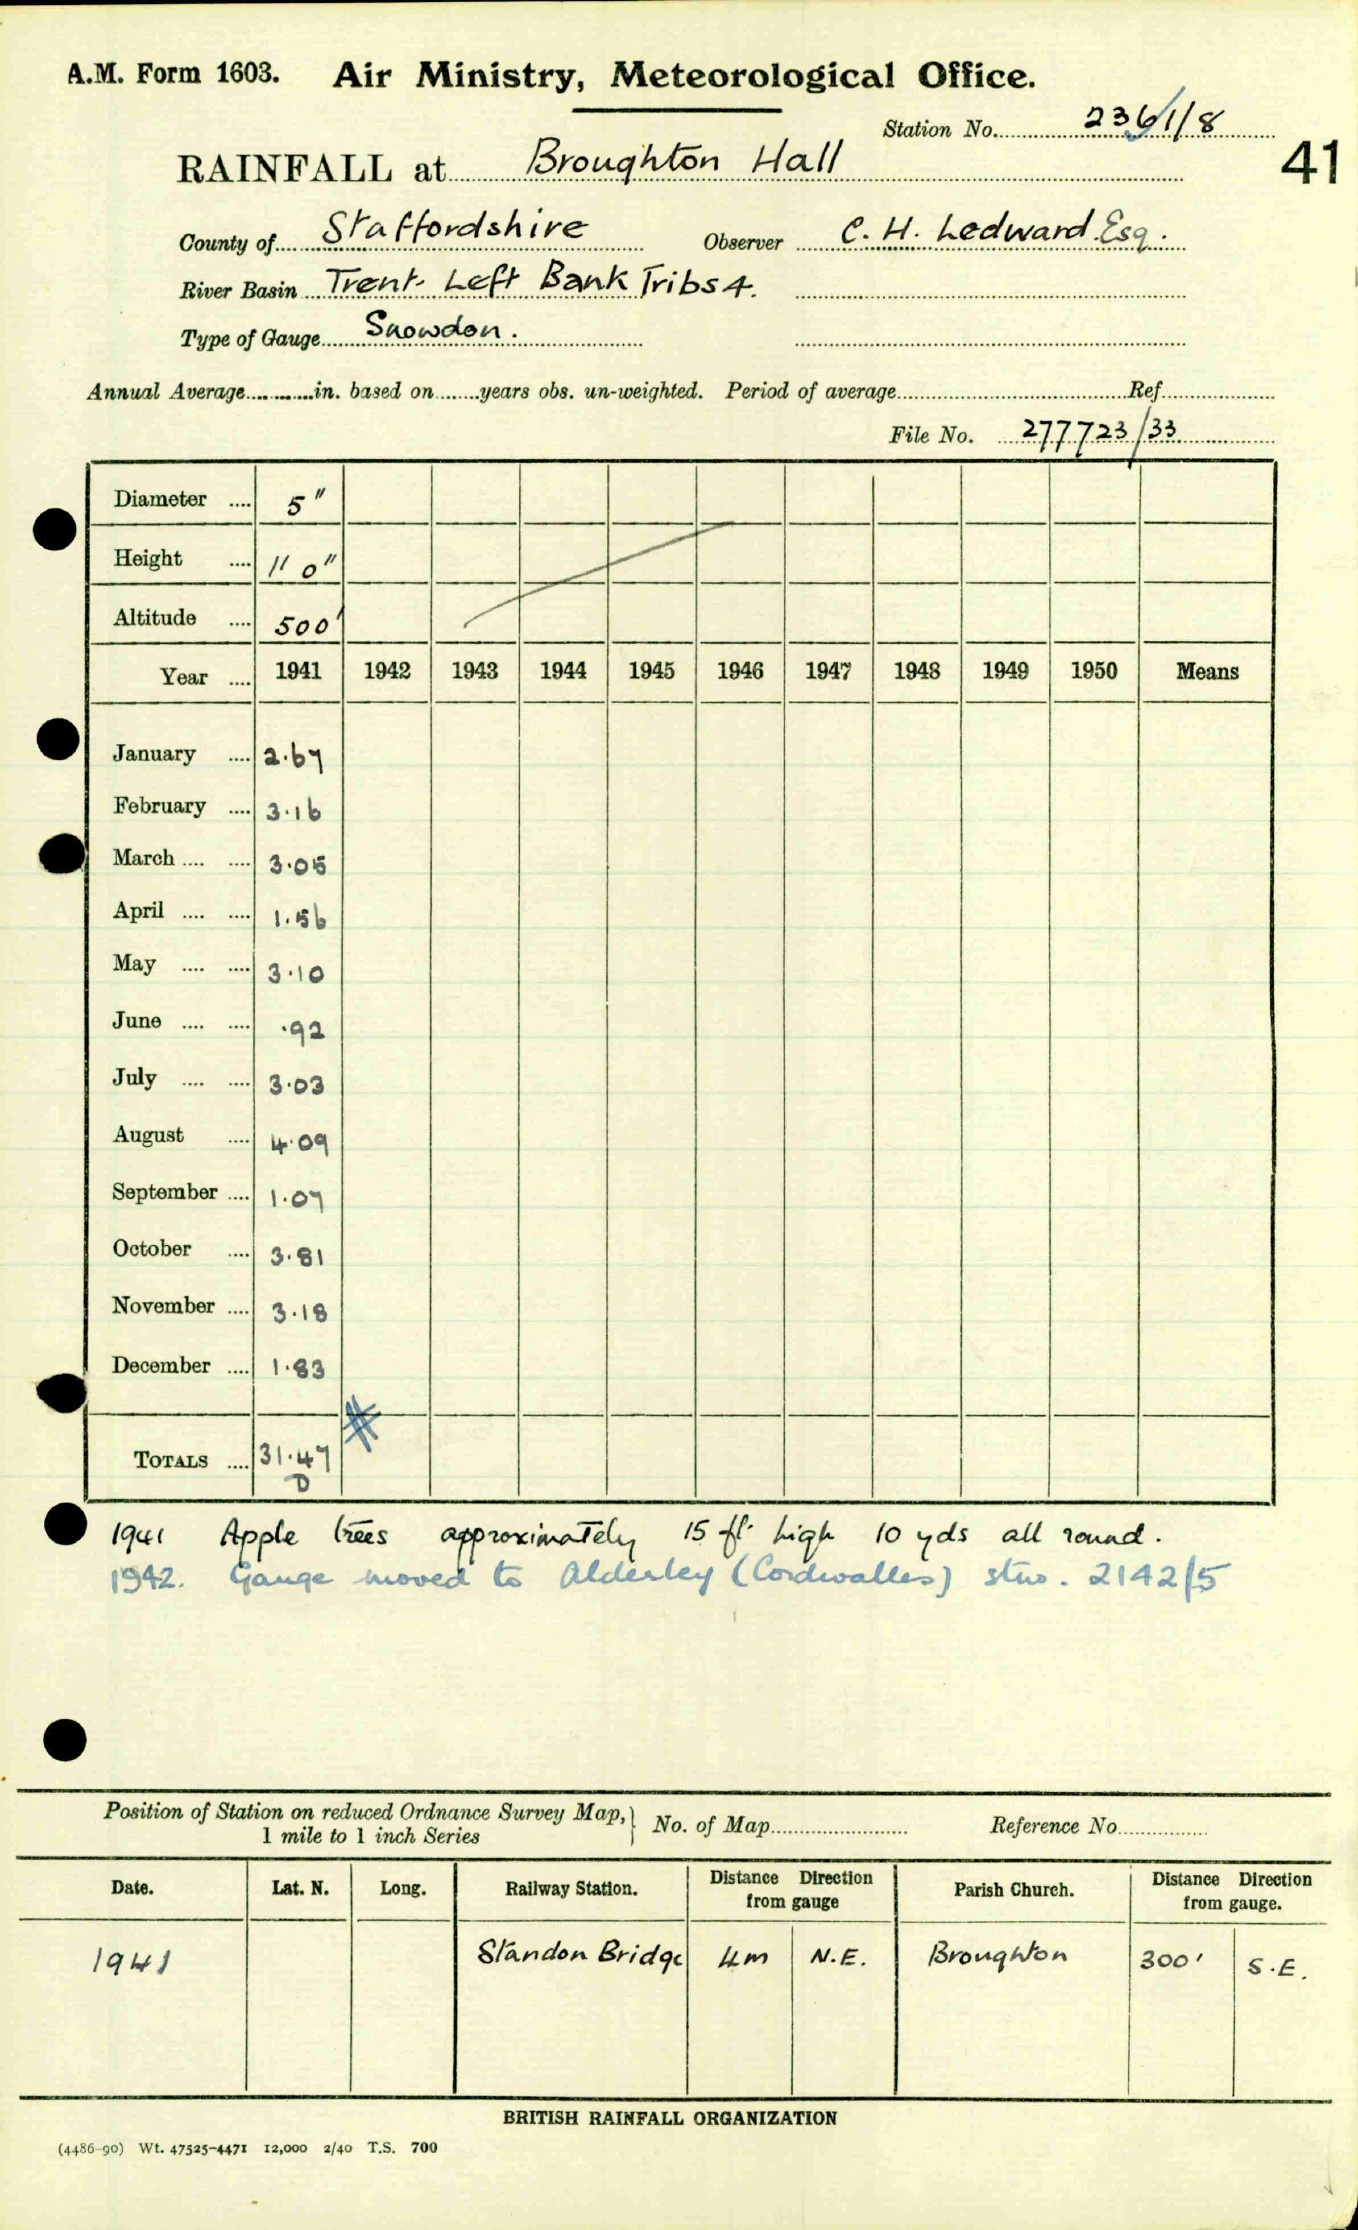 A.M. Form 1603. Air Ministry, Meteorological Office.
Station No. 2361/8
41
RAINFALL at Broughton Hall
County of Staffordshire Observer C. H. Ledward Esq.
River Basin Trent Left Bank Tribs 4.
Type of Gauge Snowdon.
Annual Average in. based on years obs. un-weighted. Period of average Ref
File No. 277723/33
Diameter .... 5"
Height .... 1' 0"
Altitude .... 500'
Year .... 1941 1942 1943 1944 1945 1946 1947 1948 1949 1950 Means
January .... 2.67
February .... 3.16
March .... .... 3.05
April .... .... 1.56
May .... .... 3.10
June .... .... .92
July .... .... 3.03
August .... 4.09
September .... 1.07
October .... 3.81
November .... 3.18
December .... 1.83
TOTALS .... 31.47
D
1941 Apple trees approximately 15 ft. high 10 yds all round.
1942. Gauge moved to Alderley (Cordwalles) stn. 2142/5
Position of Station on reduced Ordnance Survey Map, } No. of Map Reference No
1 mile to 1 inch Series
Date. Lat. N. Long. Railway Station. Distance Direction from gauge Parish Church. Distance Direction from gauge.
1941 Standon Bridge 4m N.E. Broughton 300' S.E.
BRITISH RAINFALL ORGANIZATION
(4486-90) Wt. 47525-4471 12,000 2/40 T.S. 700